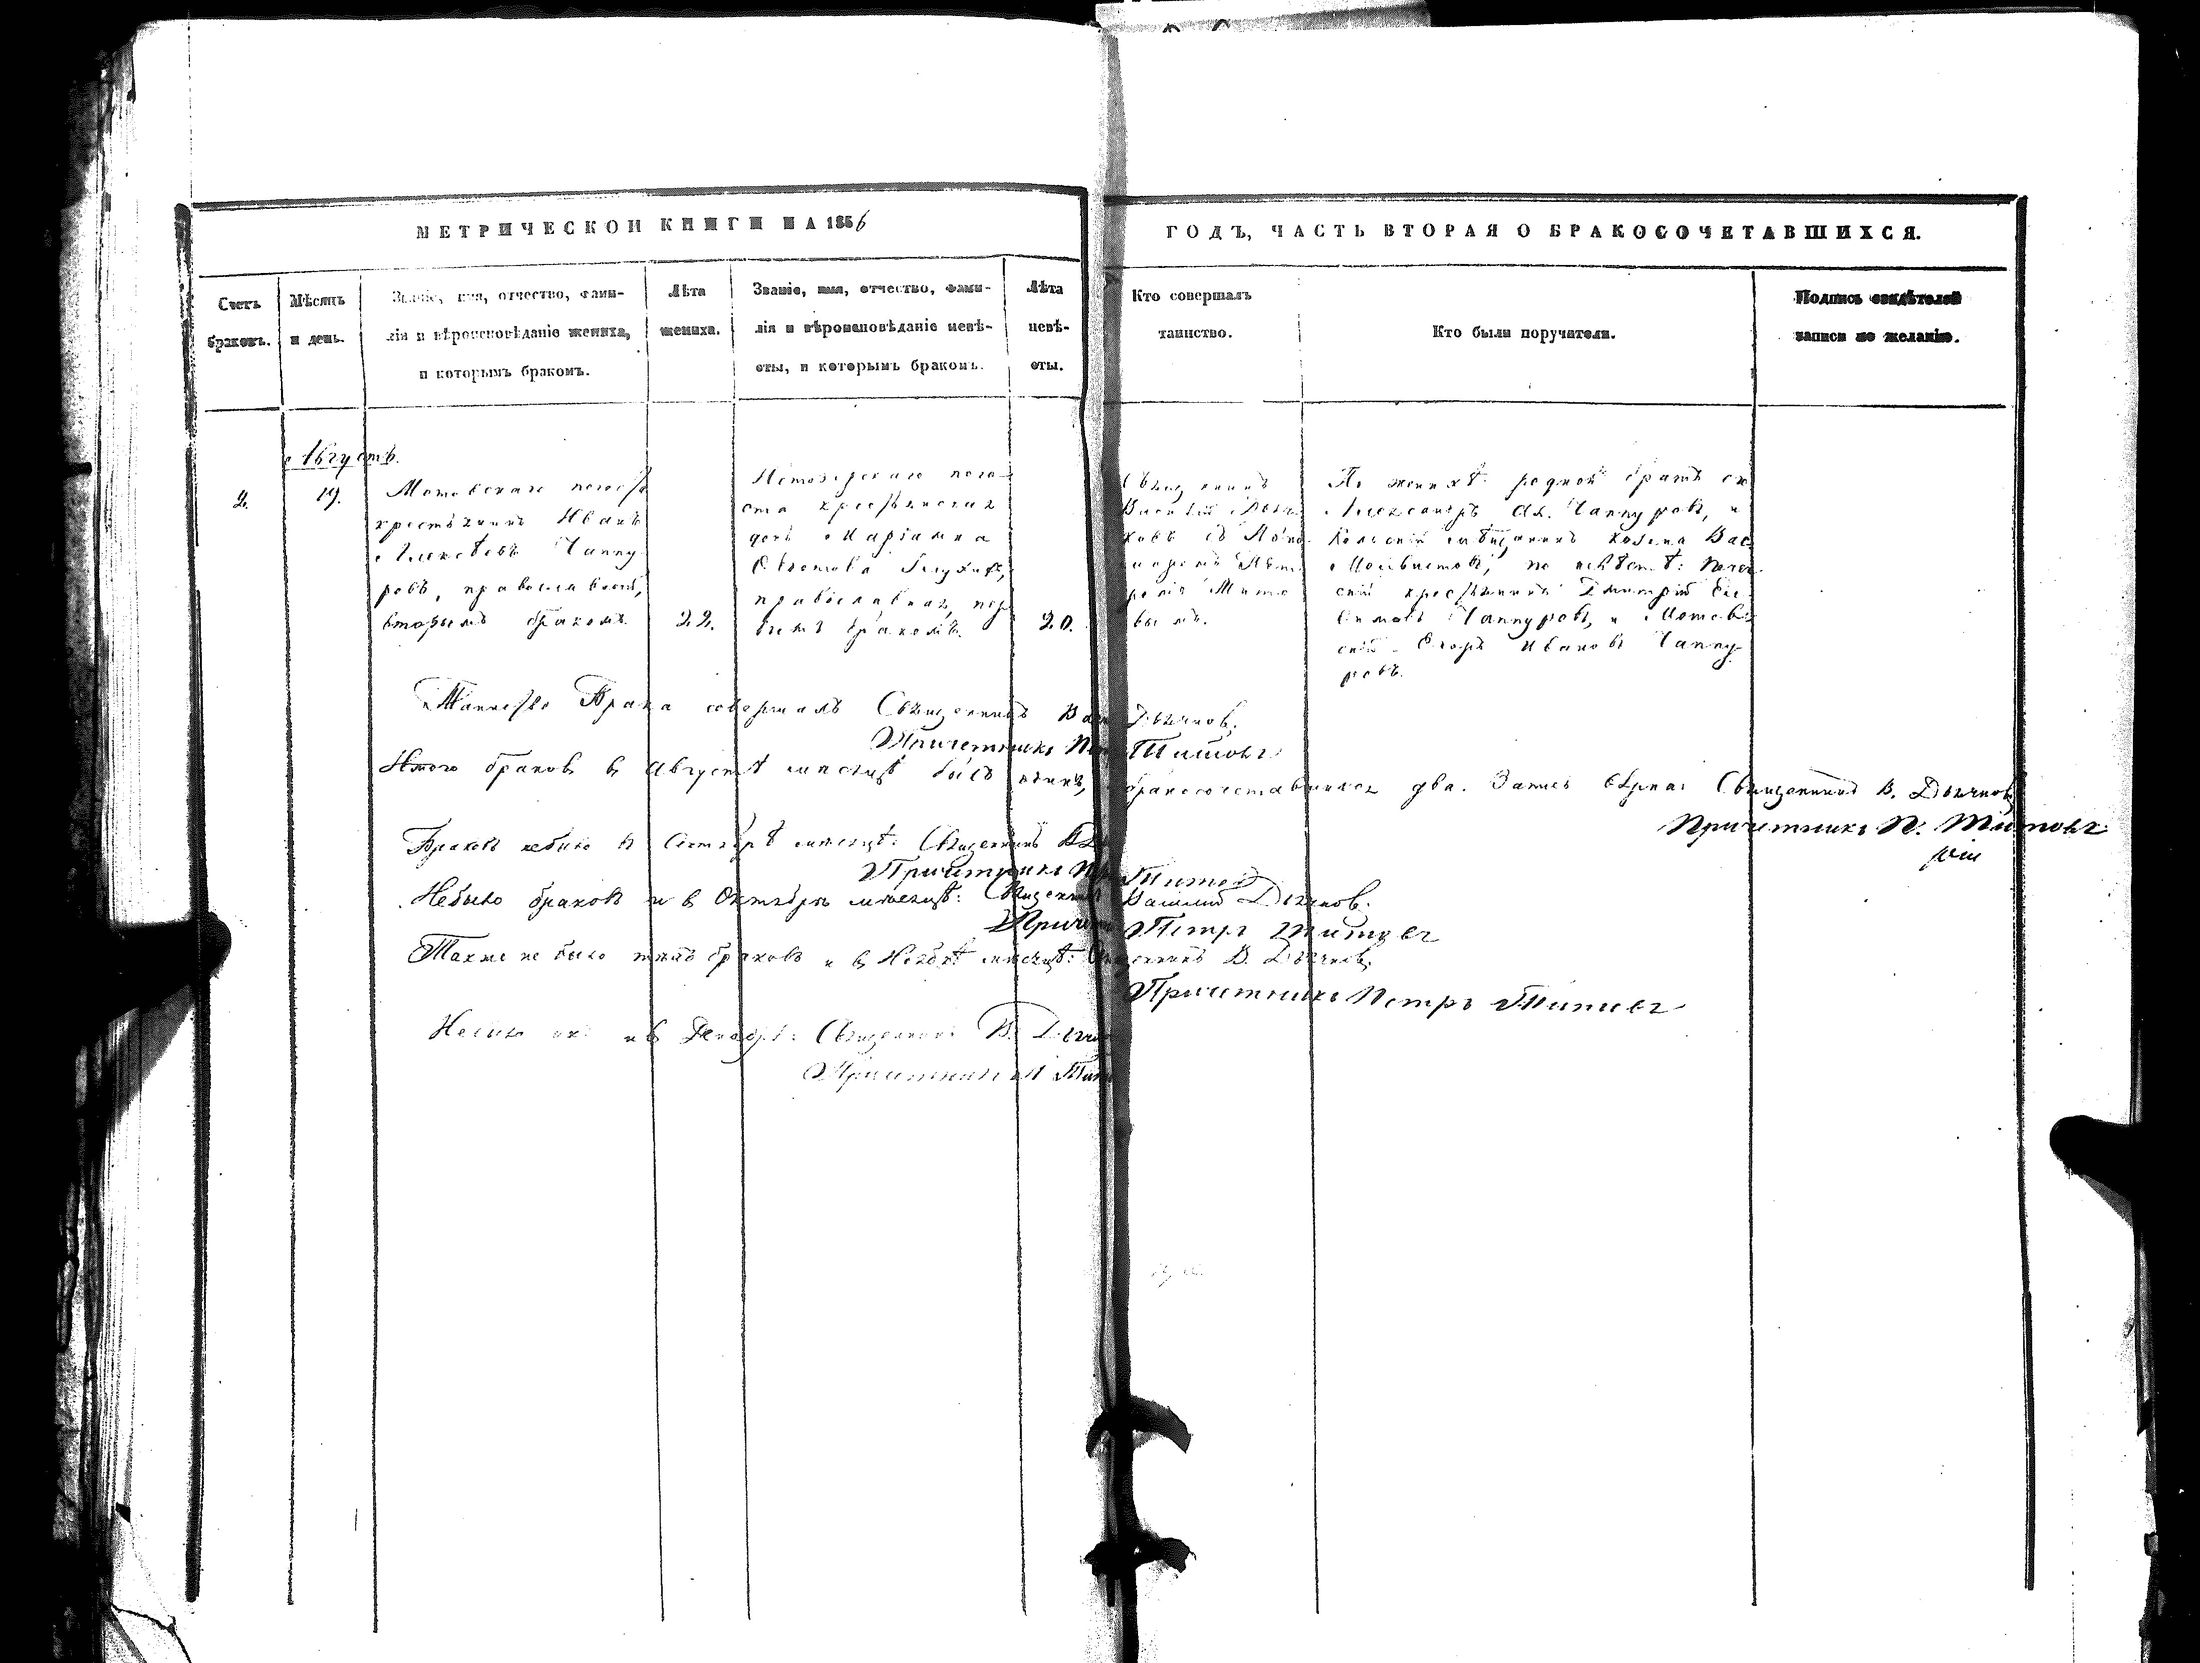 МЕТРИЧЕСКОЙ КНИГИ НА 1856
ГОДЪ, ЧАСТЬ ВТОРАЯ О БРАКОСОЧЕТАВШИХСЯ.
Счетъ
браковъ.
Мѣсяцъ
и день.
Званіе, имя, отчество, фами-
лія и вѣроисповѣданіе жениха,
и которымъ бракомъ.
Лѣта
жениха.
Званіе, имя, отчество, фами-
лія и вѣроисповѣданіе невѣ-
сты, и которымъ бракомъ.
Лѣта
невѣ-
сты.
Кто совершалъ
таинство.
Кто были поручители.
Подпись свидѣтелей
записи по желанію.
Августъ.
2.
19.
Мотовскаго погоста
крестьянинъ Иванъ
Алексѣевъ Чаппу
ровъ, православный,
вторымъ бракомъ.
22.
пого-
ста крестьянская
дочь Маріамна
православная, пер
вымъ бракомъ.
20.
Священникъ
Василій
ковъ съ
Тито
вымъ.
По женихѣ: родной братъ его
Александръ Ал. Чаппуровъ, и
Кольскій мѣщанинъ Козьма Вас.
по невѣстѣ:
крестьянинъ Дмитрій
Чаппуровъ, и Мотов
скій Егоръ Ивановъ Чаппу-
ровъ.
Таинство Брака совершалъ Священникъ Дьячков.
Причетникъ Титовъ
Итого браковъ в Августѣ мѣсяцѣ былъ одинъ, бракосочетавшихся два. Запись вѣрна: Священникъ В. Дьячков
Причетникъ П. Титовъ
Браковъ небыло в Сентябрѣ мѣсяцѣ: Священникъ
Причетникъ Титов
Небыло браковъ и в Октябрѣ мѣсяцѣ: Священникъ Василій Дьячков.
Причетникъ Петръ Титовъ
Также не было браковъ и в Ноябрѣ мѣсяцѣ: Священникъ В. Дьячков.
Причетникъ Петръ Титовъ
Небыло и в Декабрѣ: Священникъ В. Дьячков
Причетникъ П Тит